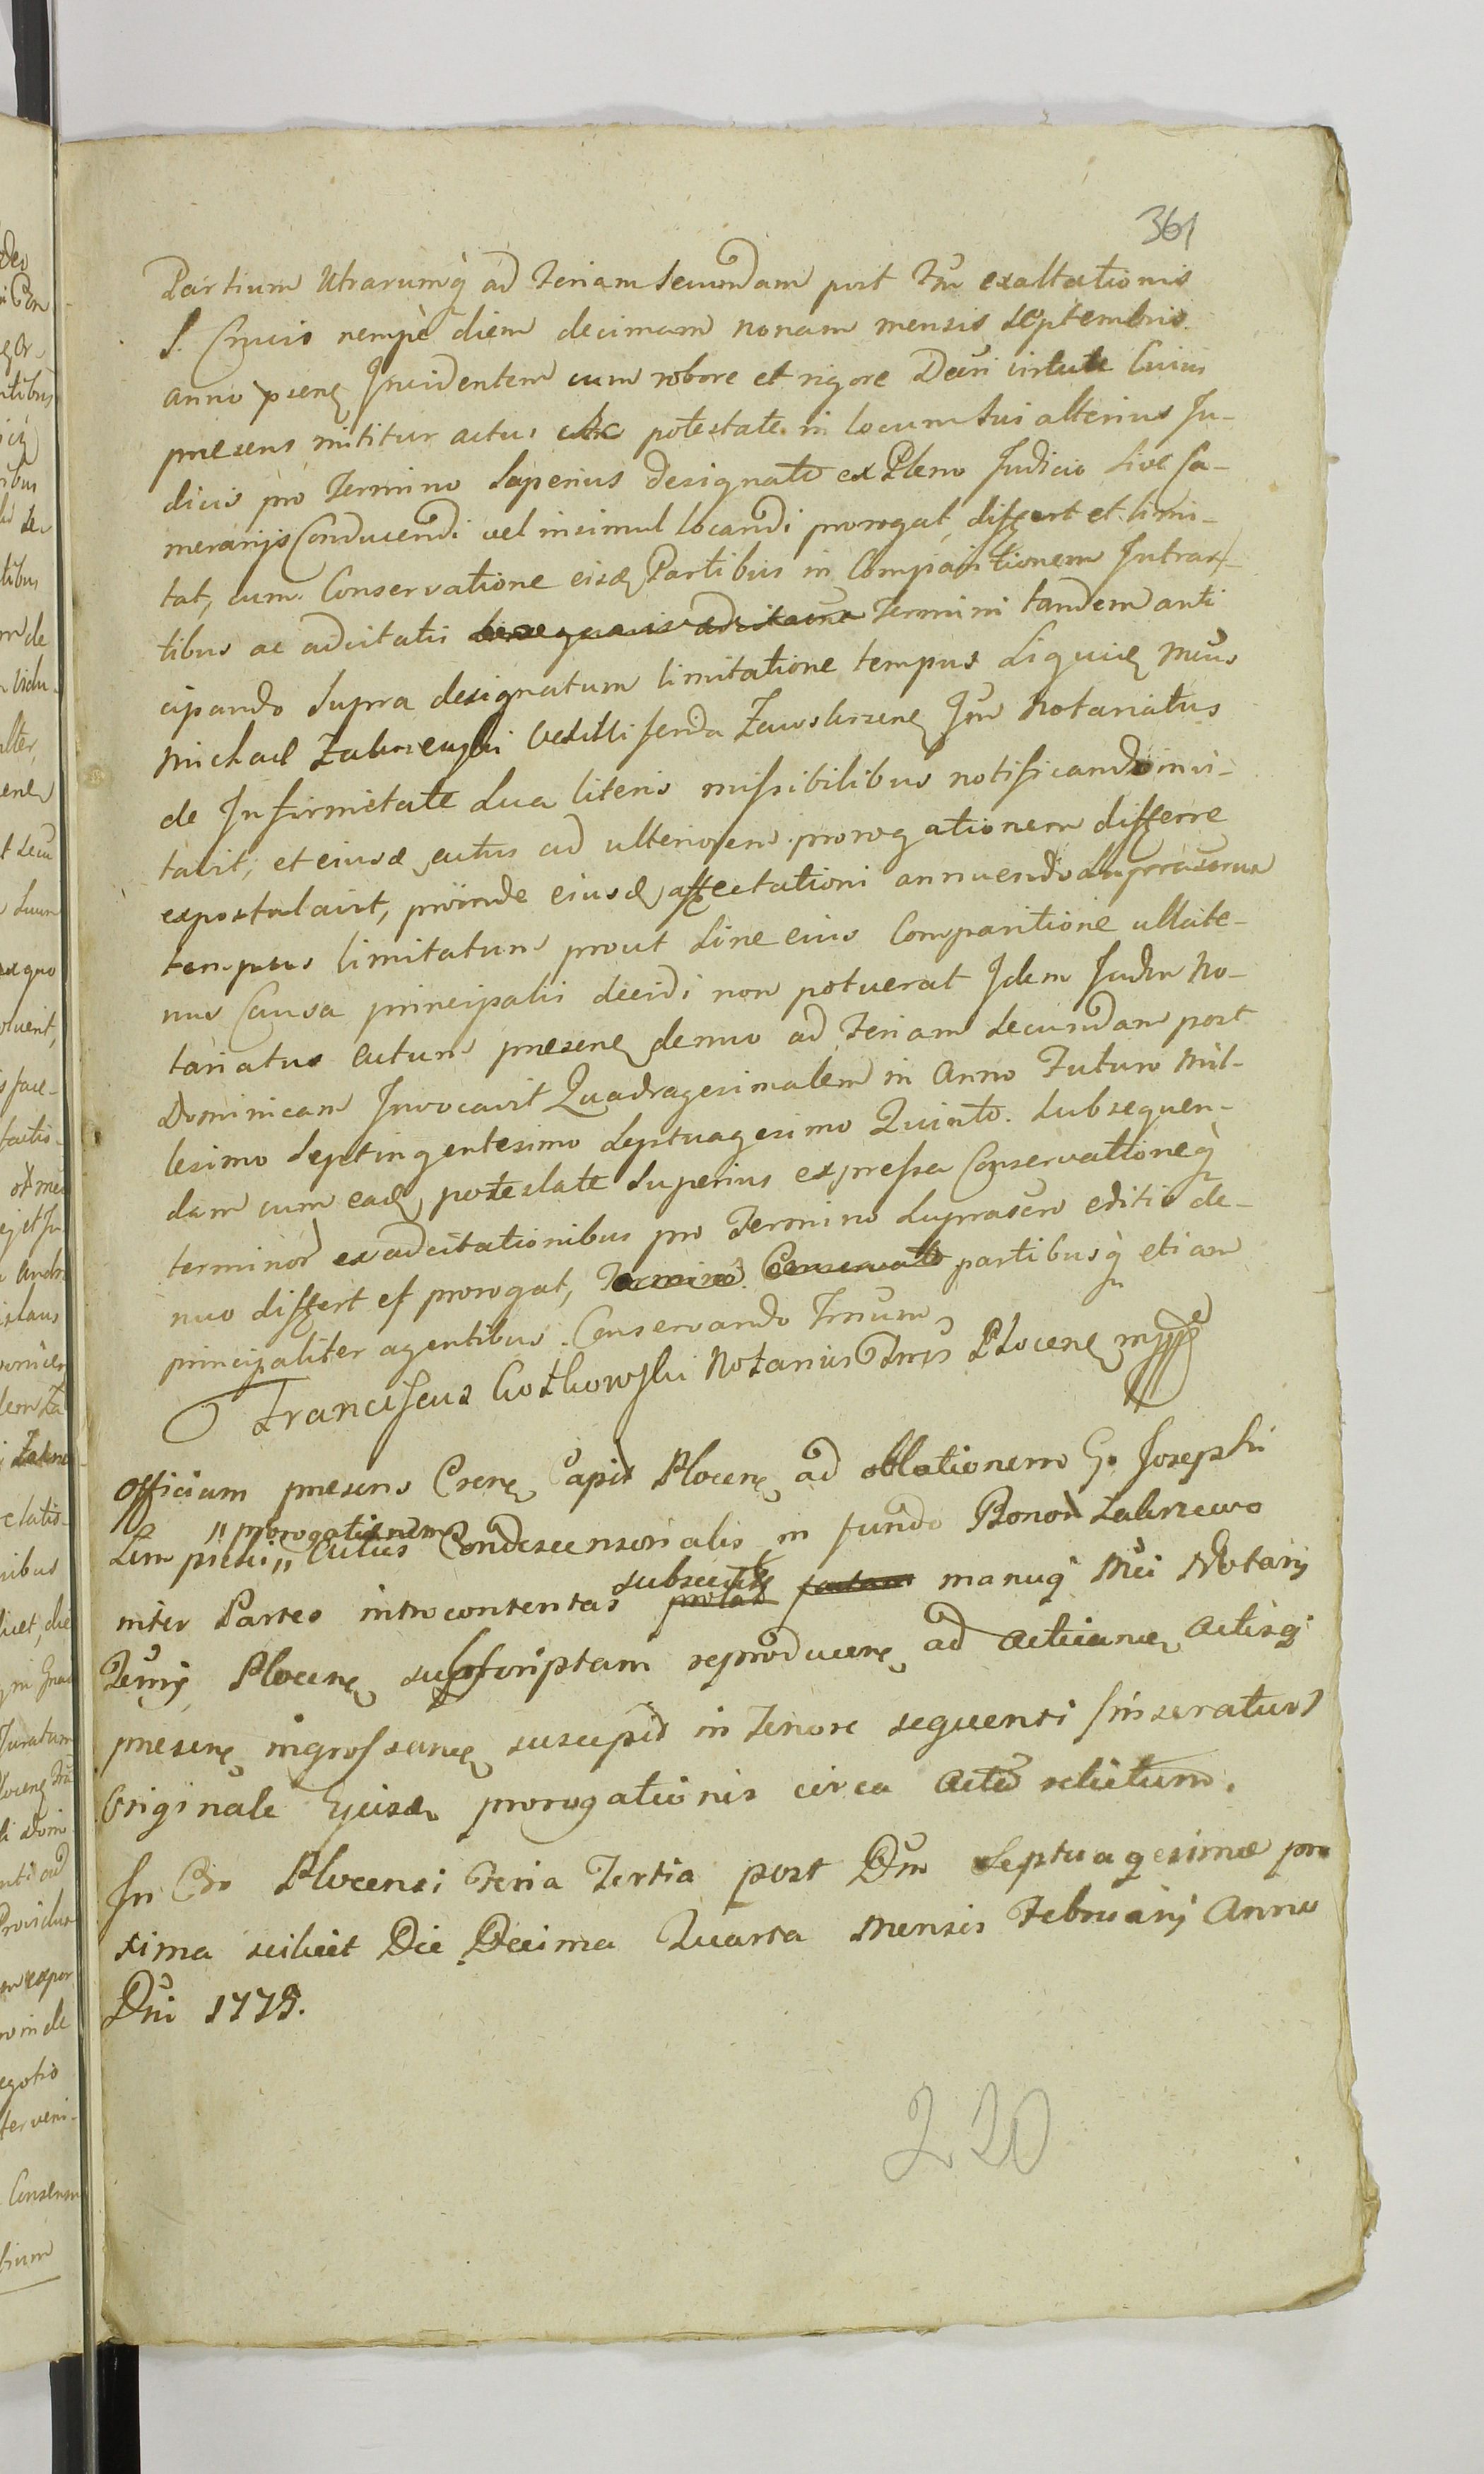 361
Partium Utrarumq̀ ad Feriam Secundam post Fm exaltationis
S. Crucis nempè diem decimam nonam mensis Septembris
anno psenꝫ Jncidentem cum robore et rigore Decri virtute Cuius
presens nititur actus potestate in locum sui alterius Ju-
dicis pro Termino superius designato ex Pleno Judicio sive Ca-
merarijs Conducendi vel insimul locandi prorogat, differt et limi-
tat, cum Conservatione eisdꝫ Partibus in Comparitionem Jntran-
tibus ac adcitatis Termini tandem anti
cipando supra designatum limitatione tempus siquidꝫ Mcus
Michael Vexilliferida Zawskrzenꝫ Jnr Notariatus
de Jnfirmitate sua literis missibilibus notificando invi-
tavit, et eiusdꝫ actus ad ulteriorem prorogationem differre
expostulavit, proinde eiusdꝫ affectationi annuendo suprascrum
tempus limitatum prout sine eius Comparitione ullate-
nus Causa principalis decidi non potuerat Jdem Judm No-
tariatus actum presenꝫ denuo ad Feriam Secundam post
Dominicam Jnvocavit Quadragesimalem in Anno Futuro Mil-
lesimo Septingentesimo Septuagesimo Quinto. Subsequen-
dam cum eadꝫ potestate superius expressa Conservationeq̀
terminor ex adcitationibus pro Termino suprascro editis de-
nuo differt et prorogat, Termino Conservato partibusq̀ etiam
principaliter agentibus Conservando Trnum
Franciscus Gostkowski Notarius Trris Plocenꝫ mpp
Officium presens Crenꝫ Capit Plocenꝫ ad oblationem G. Josephi
"prorogationem
Lempicki" Actus Condescensorialis in fundo Bonor Zakrzewo
subsecutꝫ
inter Partes introcontentas manuq̀ Mci Notarij
Trris Plocenꝫ subscriptam reproducenꝫ ad acticanꝫ Actisq̀
presenꝫ ingrossanꝫ suscepit in Tenore sequenti (inseratur)
Originale Ejusdꝫ prorogationis circa Acta relictum.
Jn Cro Plocensi Feria Tertia post Dm Septuagesimæ pro
xima scilicet Die Decima Quarta Mensis Februarij Anno
Dni 1775.
220